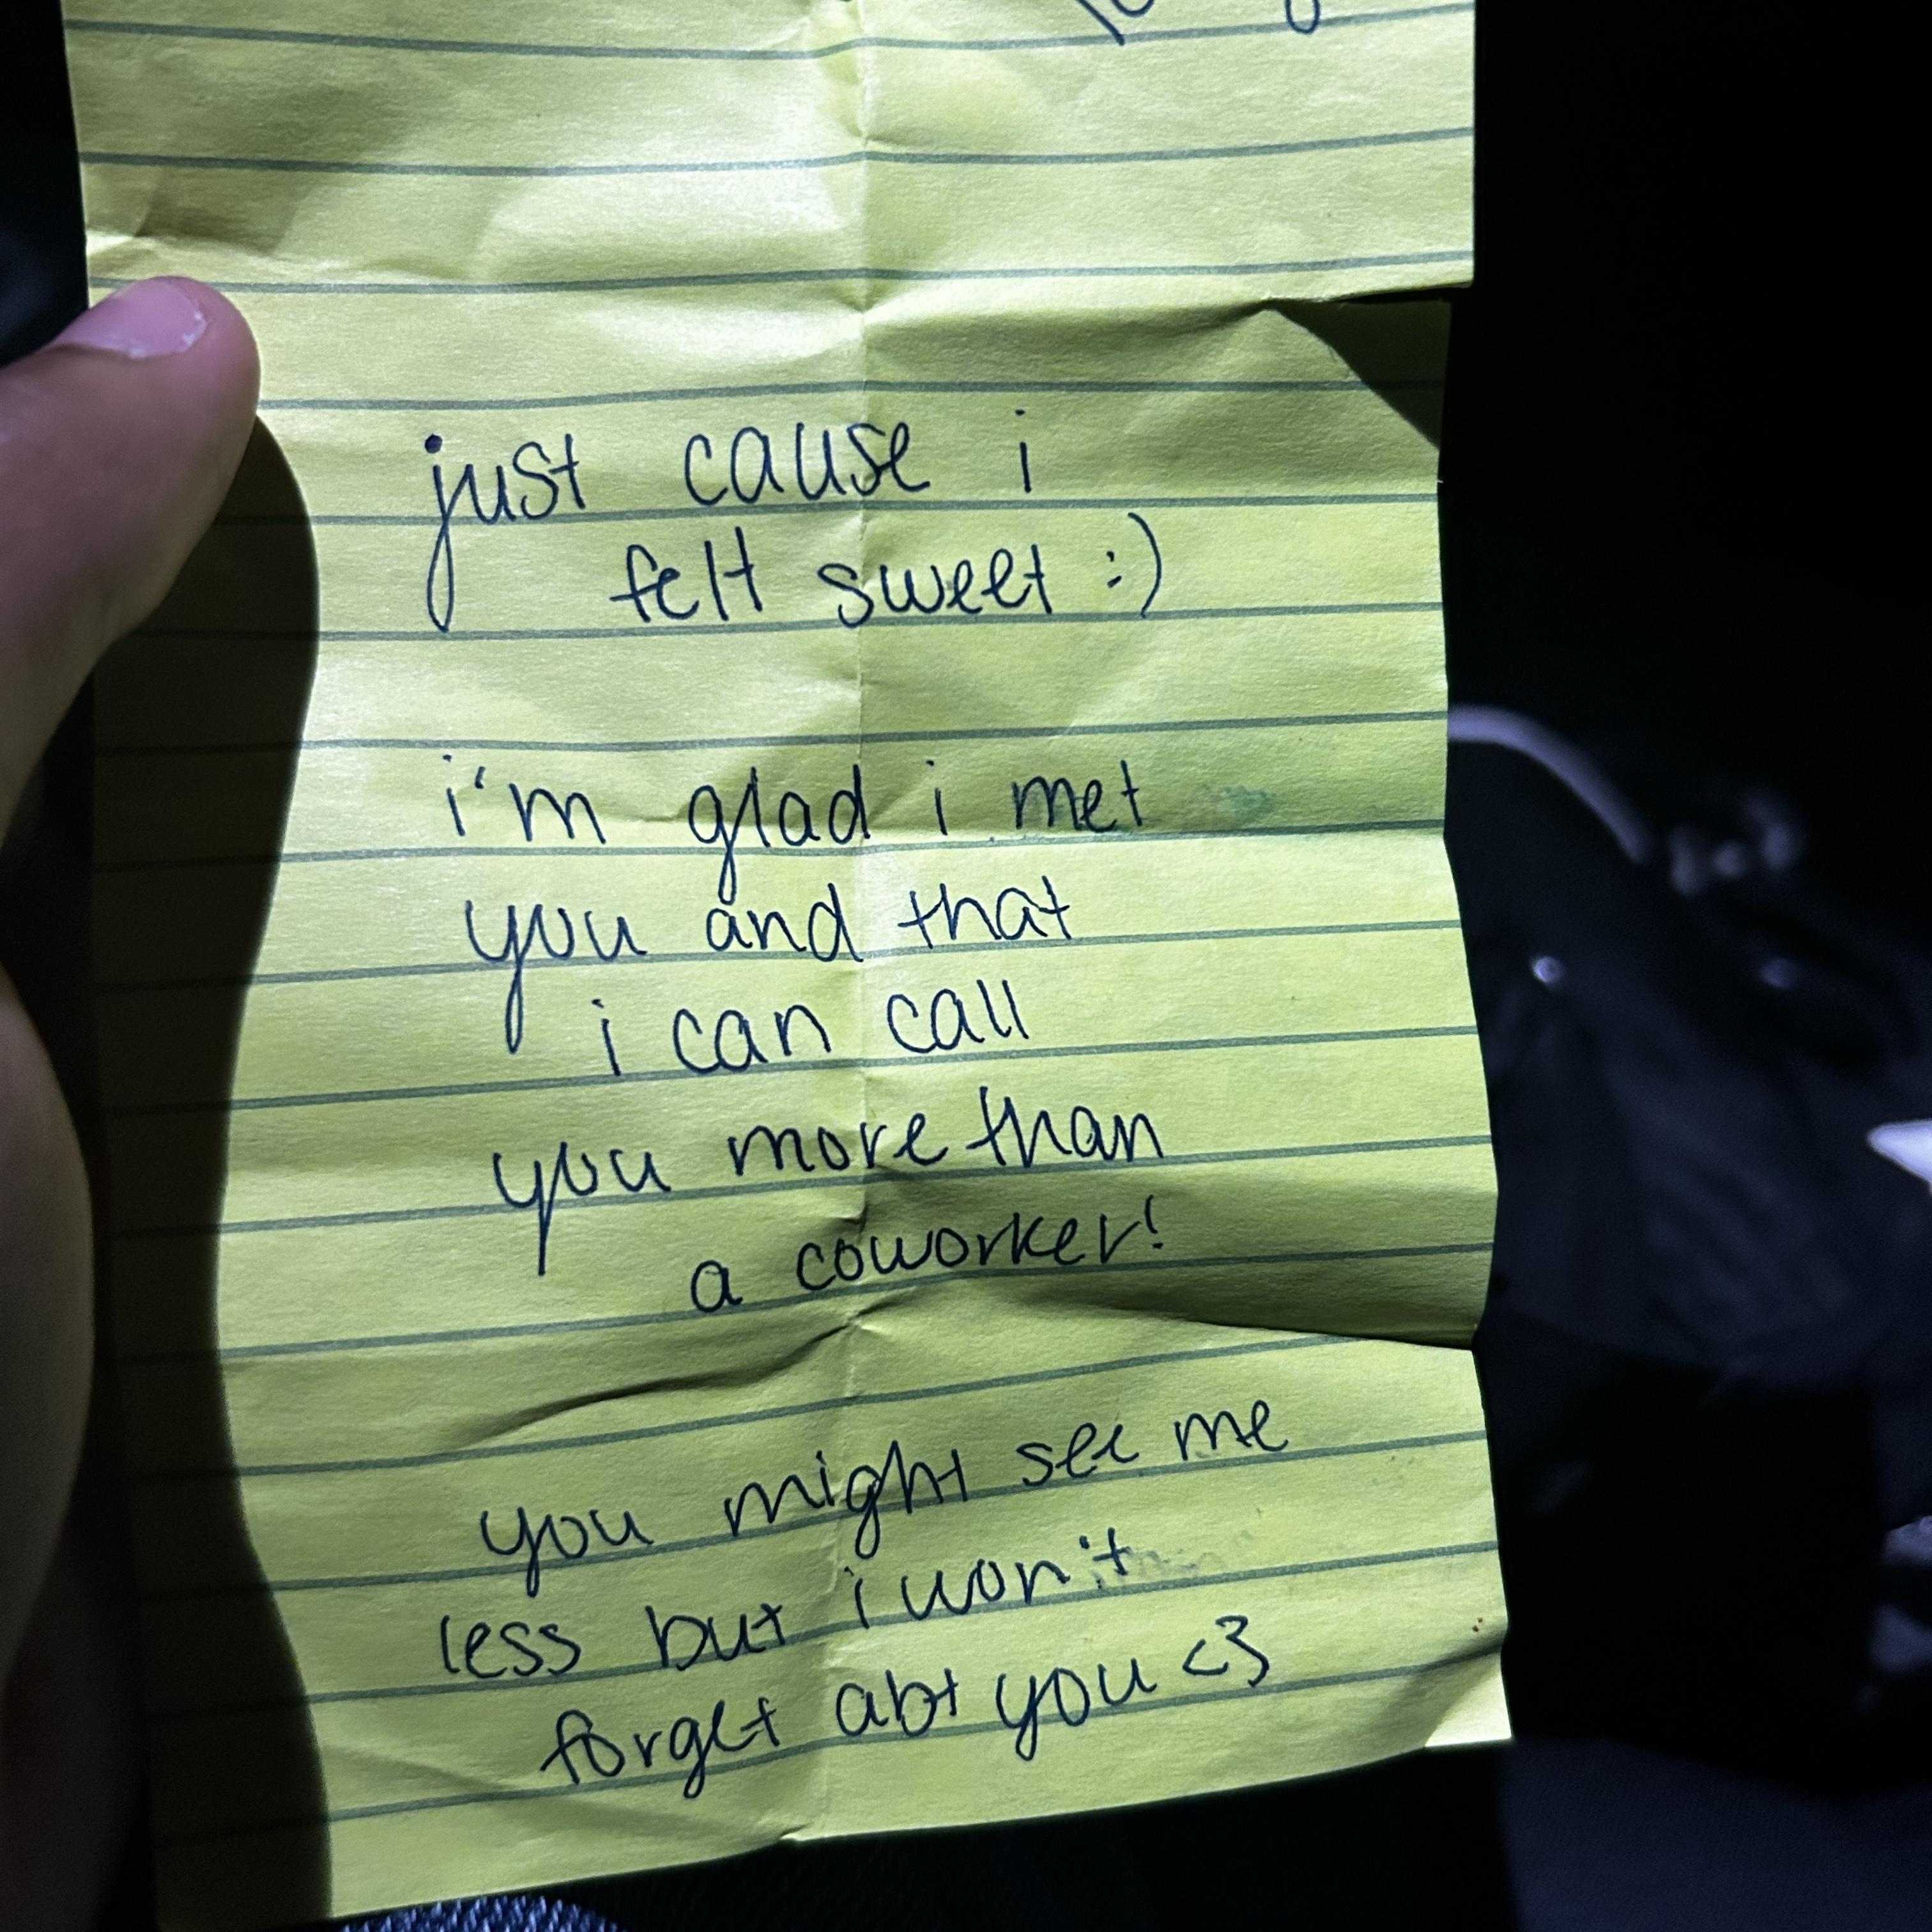 just cause i
felt sweet :)
i'm glad i met
you and that
i can call
you more than
a coworker!
you might see me
less but i won't
forget abt you <3